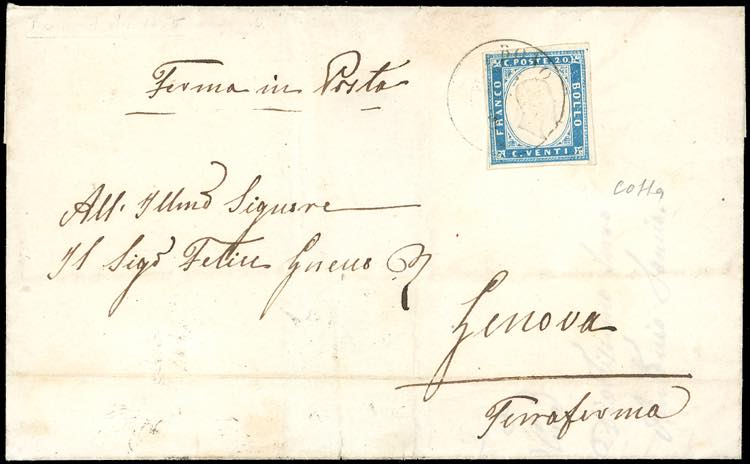 Ferma in Posta
C. POSTE. 20
FRANCO
BOLLO
C. VENTI
All' Illmo Signore
Il Sigr Felice
Genova
Terraferma